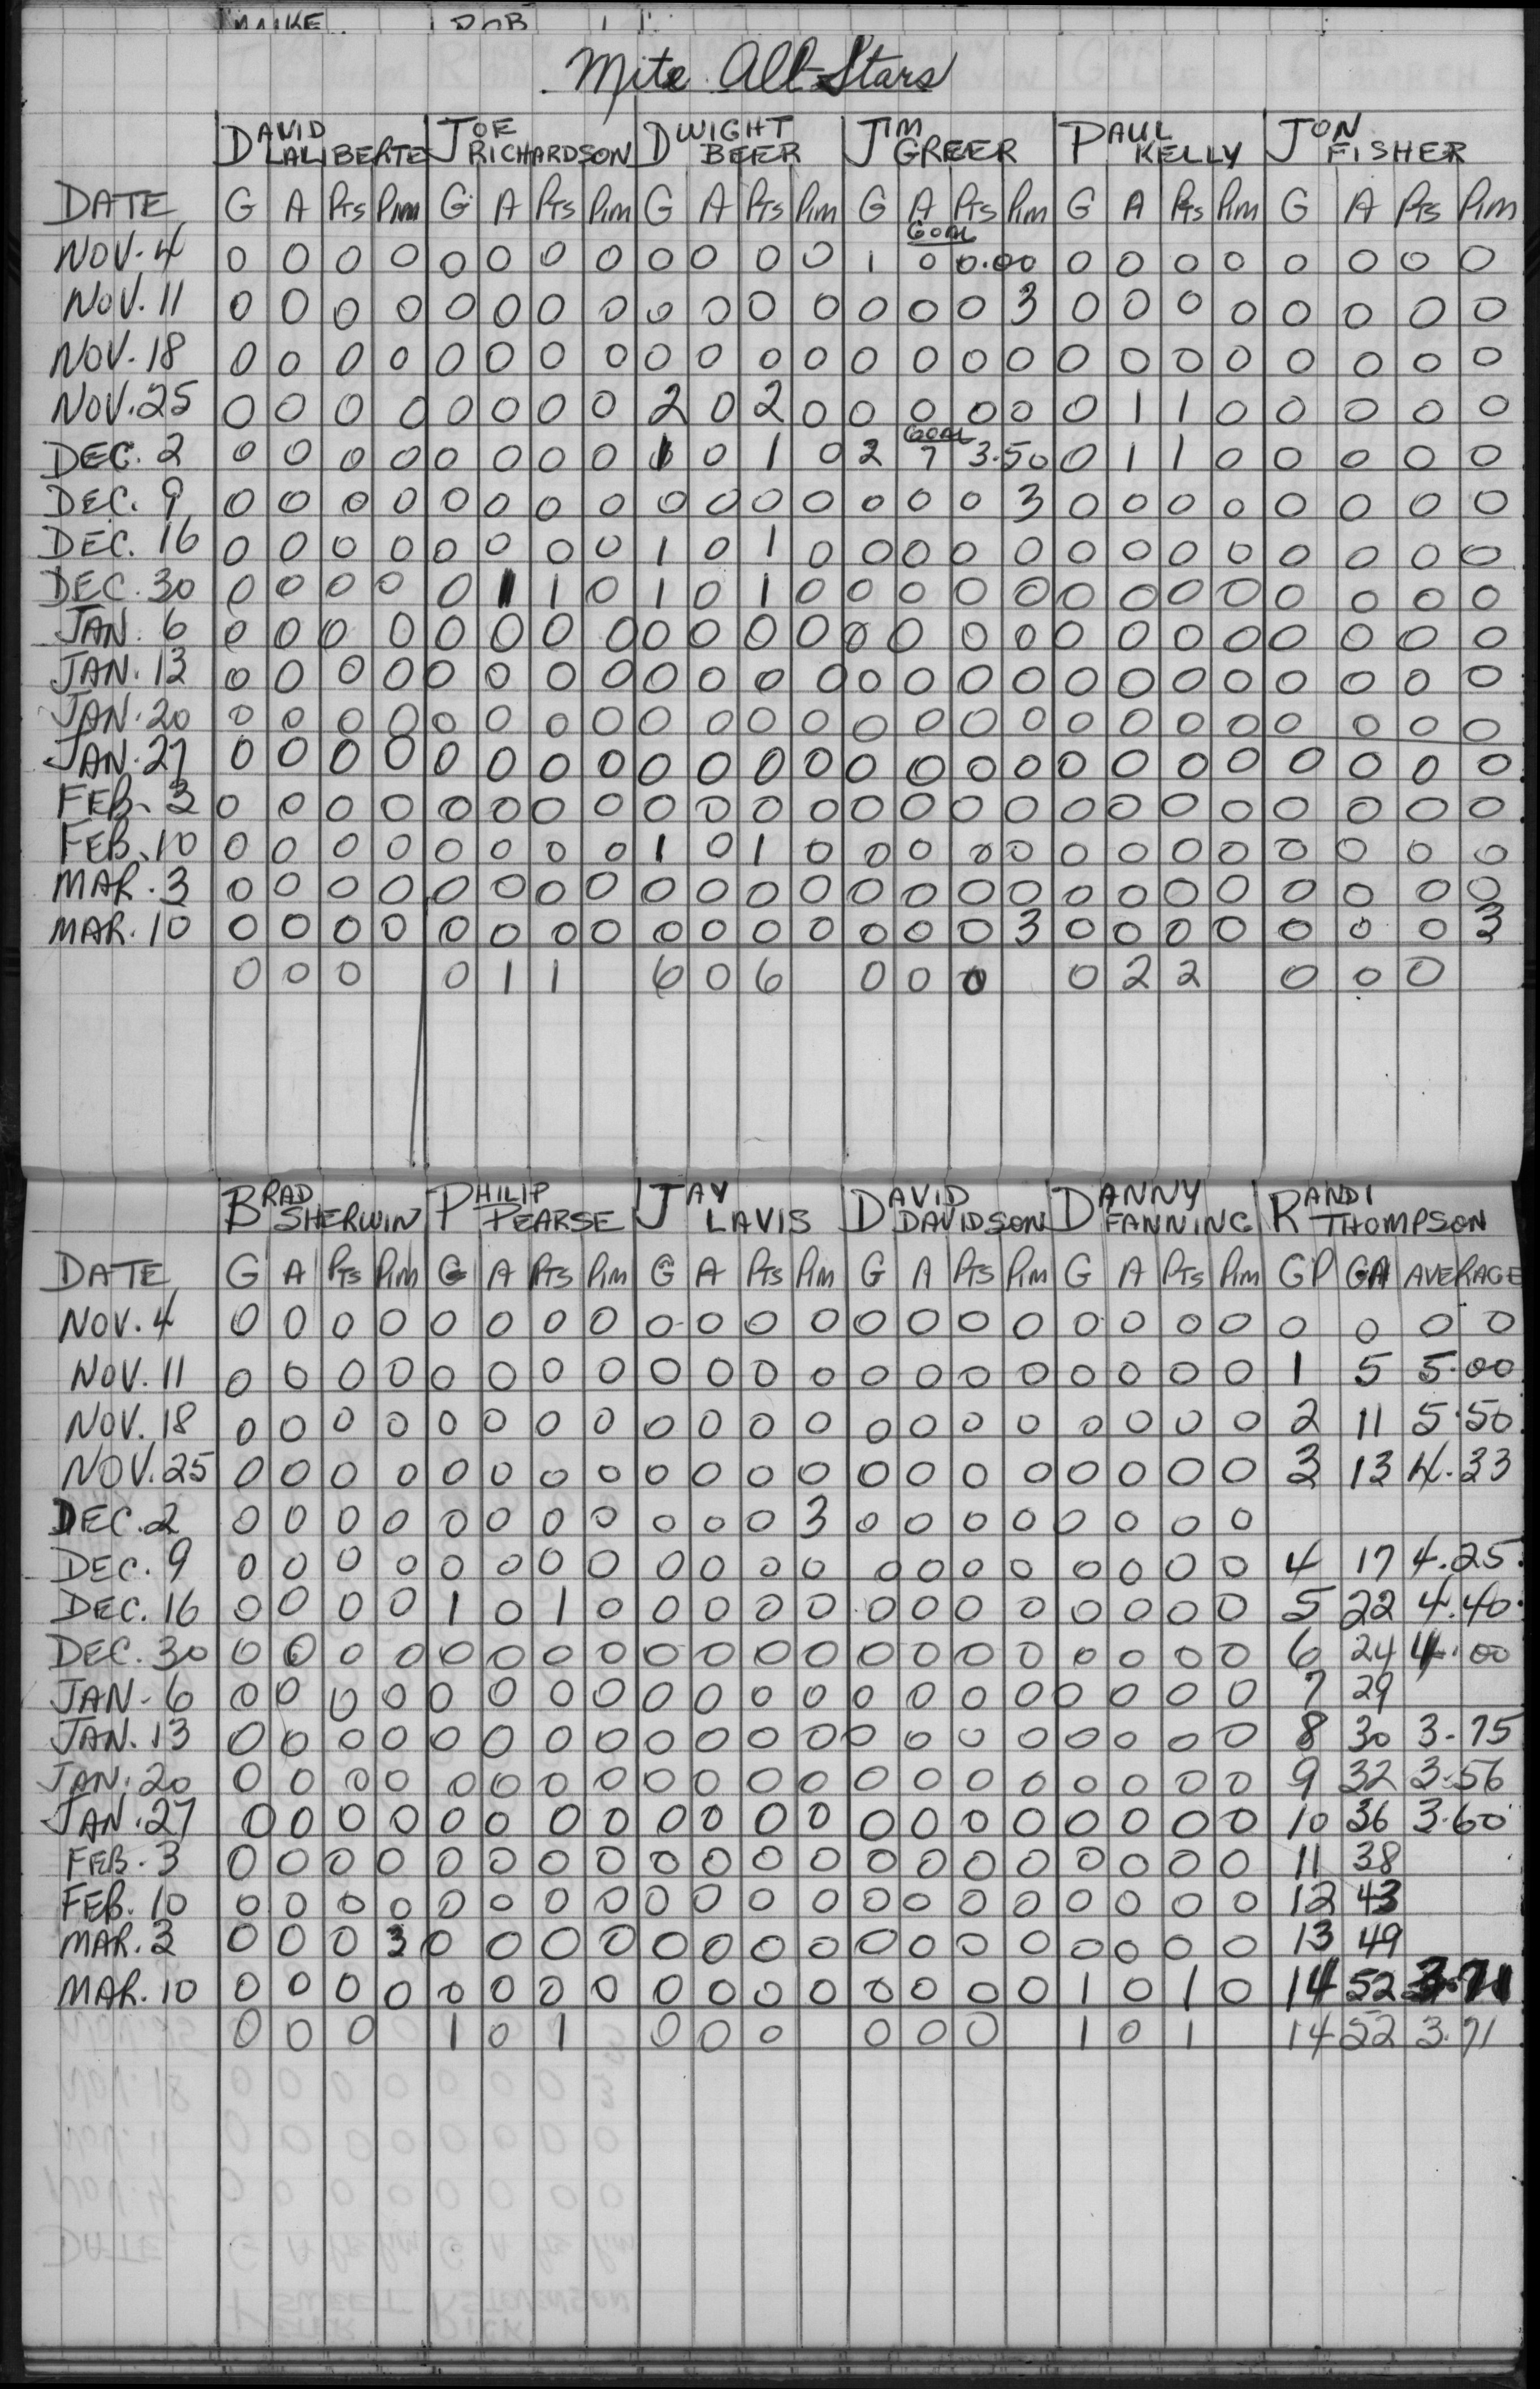 Mite All-Stars
DAVID LALIBERTE JOE RICHARDSON DWIGHT BEER JIM GREER PAUL KELLY JON FISHER
DATE G A Pts Pim G A Pts Pim G A Pts Pim G A Pts Pim G A Pts Pim G A Pts Pim
GOAL
NOV. 4 0 0 0 0 0 0 0 0 0 0 0 0 1 0 0.00 0 0 0 0 0 0 0 0
NOV. 11 0 0 0 0 0 0 0 0 0 0 0 0 0 0 0 3 0 0 0 0 0 0 0 0
NOV. 18 0 0 0 0 0 0 0 0 0 0 0 0 0 0 0 0 0 0 0 0 0 0 0 0
NOV. 25 0 0 0 0 0 0 0 0 2 0 2 0 0 0 0 0 0 1 1 0 0 0 0 0
GOAL
DEC. 2 0 0 0 0 0 0 0 0 1 0 1 0 2 7 3.50 0 1 1 0 0 0 0 0
DEC. 9 0 0 0 0 0 0 0 0 0 0 0 0 0 0 0 3 0 0 0 0 0 0 0 0
DEC. 16 0 0 0 0 0 0 0 0 1 0 1 0 0 0 0 0 0 0 0 0 0 0 0 0
DEC. 30 0 0 0 0 0 1 1 0 1 0 1 0 0 0 0 0 0 0 0 0 0 0 0 0
JAN. 6 0 0 0 0 0 0 0 0 0 0 0 0 0 0 0 0 0 0 0 0 0 0 0 0
JAN. 13 0 0 0 0 0 0 0 0 0 0 0 0 0 0 0 0 0 0 0 0 0 0 0 0
JAN. 20 0 0 0 0 0 0 0 0 0 0 0 0 0 0 0 0 0 0 0 0 0 0 0 0
JAN. 27 0 0 0 0 0 0 0 0 0 0 0 0 0 0 0 0 0 0 0 0 0 0 0 0
FEB. 3 0 0 0 0 0 0 0 0 0 0 0 0 0 0 0 0 0 0 0 0 0 0 0 0
FEB. 10 0 0 0 0 0 0 0 0 1 0 1 0 0 0 0 0 0 0 0 0 0 0 0 0
MAR. 3 0 0 0 0 0 0 0 0 0 0 0 0 0 0 0 0 0 0 0 0 0 0 0 0
MAR. 10 0 0 0 0 0 0 0 0 0 0 0 0 0 0 0 3 0 0 0 0 0 0 0 3
0 0 0 0 1 1 6 0 6 0 0 0 0 2 2 0 0 0
BRAD SHERWIN PHILIP PEARSE JAY LAVIS DAVID DAVIDSON DANNY FANNING RANDI THOMPSON
DATE G A Pts Pim G A Pts Pim G A Pts Pim G A Pts Pim G A Pts Pim GP GA AVERAGE
NOV. 4 0 0 0 0 0 0 0 0 0 0 0 0 0 0 0 0 0 0 0 0 0 0 0 0
NOV. 11 0 0 0 0 0 0 0 0 0 0 0 0 0 0 0 0 0 0 0 0 1 5 5.00
NOV. 18 0 0 0 0 0 0 0 0 0 0 0 0 0 0 0 0 0 0 0 0 2 11 5.50
NOV. 25 0 0 0 0 0 0 0 0 0 0 0 0 0 0 0 0 0 0 0 0 3 13 4.33
DEC. 2 0 0 0 0 0 0 0 0 0 0 0 3 0 0 0 0 0 0 0 0
DEC. 9 0 0 0 0 0 0 0 0 0 0 0 0 0 0 0 0 0 0 0 0 4 17 4.25
DEC. 16 0 0 0 0 1 0 1 0 0 0 0 0 0 0 0 0 0 0 0 0 5 22 4.40
DEC. 30 0 0 0 0 0 0 0 0 0 0 0 0 0 0 0 0 0 0 0 0 6 24 4.00
JAN. 6 0 0 0 0 0 0 0 0 0 0 0 0 0 0 0 0 0 0 0 0 7 29
JAN. 13 0 0 0 0 0 0 0 0 0 0 0 0 0 0 0 0 0 0 0 0 8 30 3.75
JAN. 20 0 0 0 0 0 0 0 0 0 0 0 0 0 0 0 0 0 0 0 0 9 32 3.56
JAN. 27 0 0 0 0 0 0 0 0 0 0 0 0 0 0 0 0 0 0 0 0 10 36 3.60
FEB. 3 0 0 0 0 0 0 0 0 0 0 0 0 0 0 0 0 0 0 0 0 11 38
FEB. 10 0 0 0 0 0 0 0 0 0 0 0 0 0 0 0 0 0 0 0 0 12 43
MAR. 3 0 0 0 3 0 0 0 0 0 0 0 0 0 0 0 0 0 0 0 0 13 49
MAR. 10 0 0 0 0 0 0 0 0 0 0 0 0 0 0 0 0 1 0 1 0 14 52 3.71
0 0 0 1 0 1 0 0 0 0 0 0 1 0 1 14 52 3.71